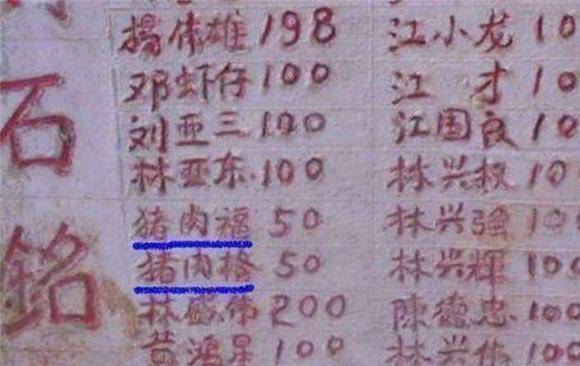 石
銘
楊伟雄 198
邓虾仔 100
刘亚三 100
林亚东 100
猪肉福 50
猪肉格 50
林 伟 200
黄鸿星 100
江小龙 10
江才 10
江国良 10
林兴权 10
林兴強 100
林兴輝 100
陳德忠 100
林兴伟 100